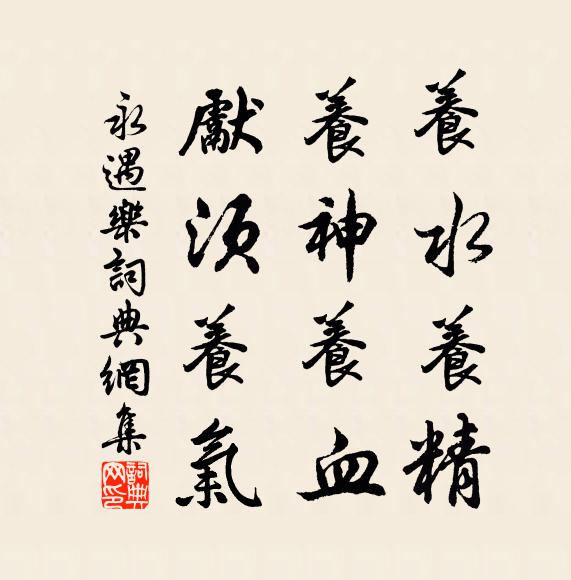 養水養精
養神養血
獻須養氣
永遇樂詞典網集
詞典网印